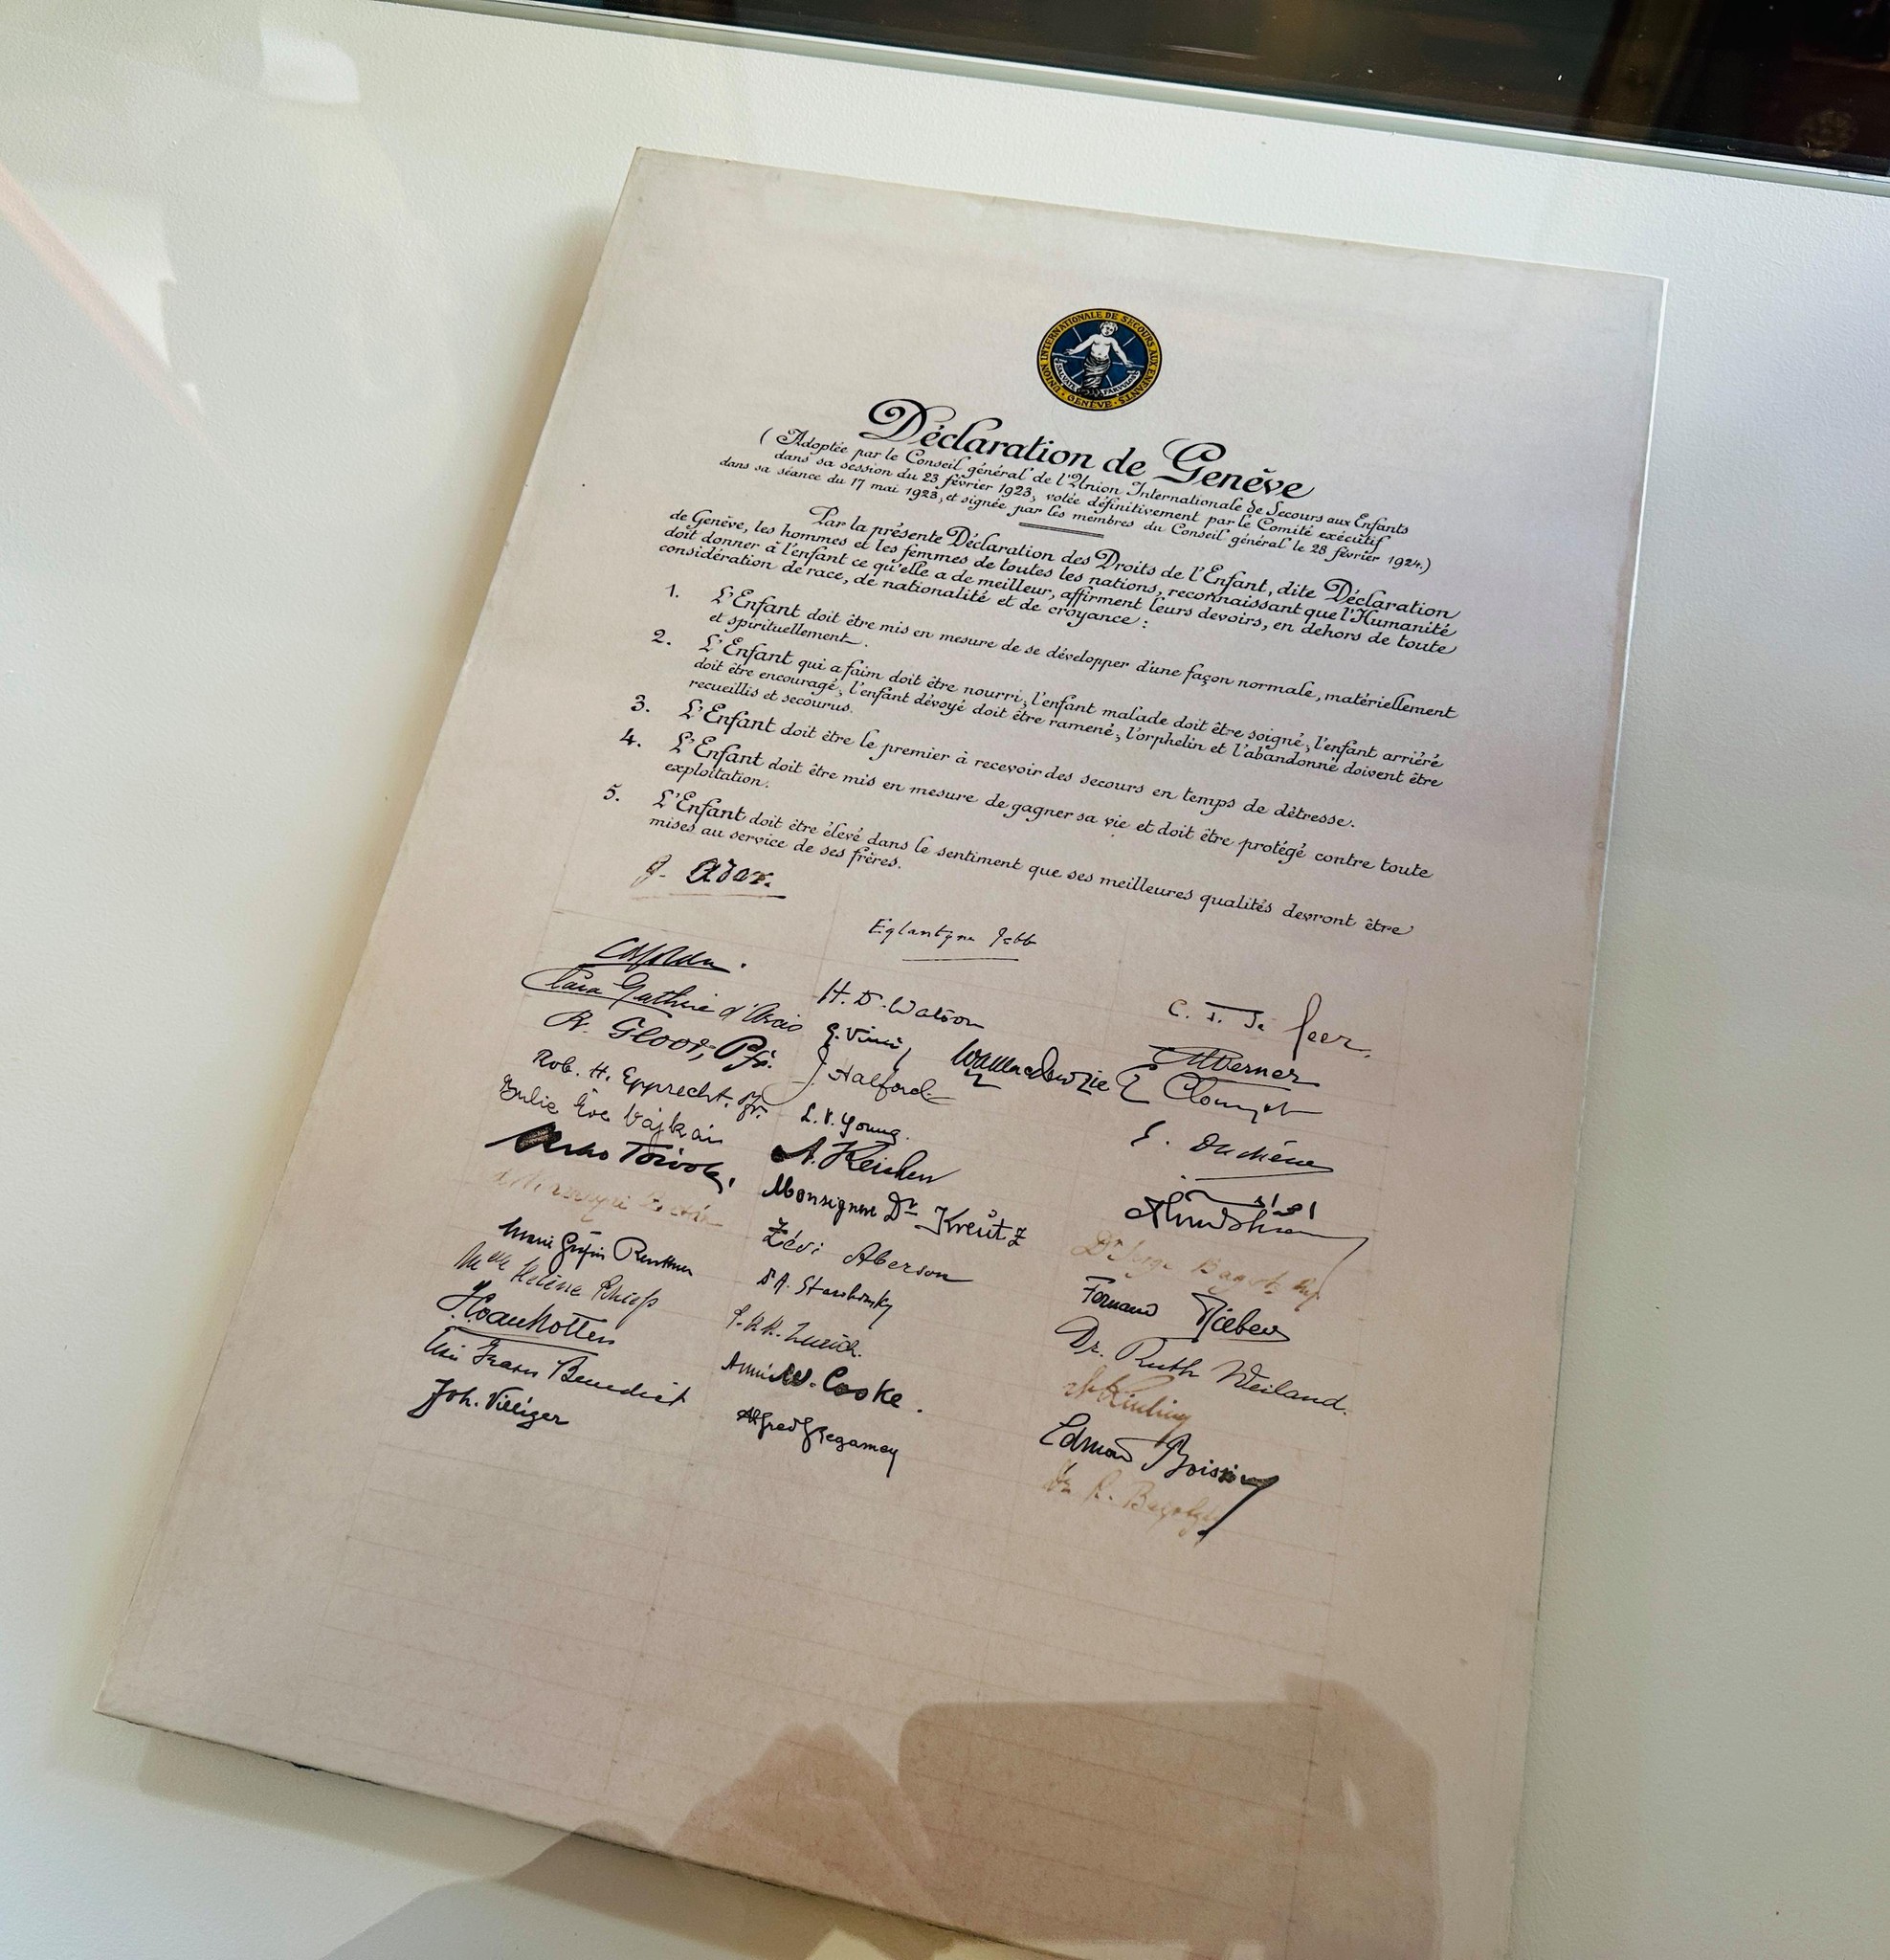 UNION INTERNATIONALE DE SECOURS AUX ENFANTS
· GENÈVE ·
Déclaration de Genève
(Adoptée par le Conseil général de l'Union Internationale de Secours aux Enfants
dans sa session du 23 février 1923, votée définitivement par le Comité exécutif
dans sa séance du 17 mai 1923, et signée par les membres du Conseil général le 28 février 1924.)
Par la présente Déclaration des Droits de l'Enfant, dite Déclaration
de Genève, les hommes et les femmes de toutes les nations, reconnaissant que l'Humanité
doit donner à l'enfant ce qu'elle a de meilleur, affirment leurs devoirs, en dehors de toute
considération de race, de nationalité et de croyance :
1. L'Enfant doit être mis en mesure de se développer d'une façon normale, matériellement
et spirituellement.
2. L'Enfant qui a faim doit être nourri; l'enfant malade doit être soigné; l'enfant arriéré
doit être encouragé; l'enfant dévoyé doit être ramené; l'orphelin et l'abandonné doivent être
recueillis et secourus.
3. L'Enfant doit être le premier à recevoir des secours en temps de détresse.
4. L'Enfant doit être mis en mesure de gagner sa vie et doit être protégé contre toute
exploitation.
5. L'Enfant doit être élevé dans le sentiment que ses meilleures qualités devront être
mises au service de ses frères.
G. Ador.
Eglantyne Jebb
H. D. Watson
R. Gloor, Pfr.
J. Halford
Rob. H. Epprecht. Pfr.
L. V. Young.
Julie Eve Vajkai
E. Clouzot
Arno Toivola,
Monsignore Dr Kreutz
Zévi Aberson
Fernand
Dr. Ruth Weiland.
Benedict
Annie W. Cooke.
Joh. Villiger
Alfred Regamey
Edmond Boissier